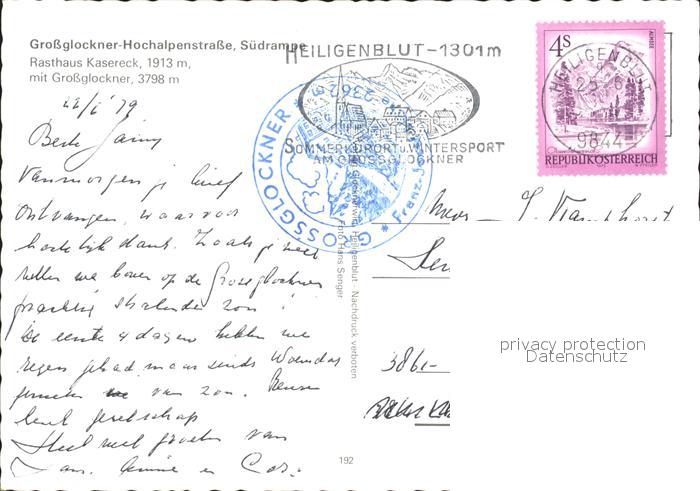 Großglockner-Hochalpenstraße, Südrampe
Rasthaus Kasereck, 1913 m,
mit Großglockner, 3798 m
HEILIGENBLUT-1301m
SOMMERKURORT u. WINTERSPORT
AM GROSSGLOCKNER
* GROSSGLOCKNER *
Franz-Jose
2362 m
4S
ALMSEE
REPUBLIK ÖSTERREICH
HEILIGENBLUT
9844
22/6 '79
Beste
Vanmorgen je brief
ontvangen, waarvoor
hartelijk dank. Zoals je ziet
zitten we boven op de Grossglockner
prachtig stralende zon!
De eerste 4 dagen hebben we
regen gehad, maar sinds Woensdag
genieten we van zon.
leuk gezelschap
Heel veel groeten van
en Cor.
Mevr.
3861-
Heiligenblut · Nachdruck verboten
Foto Hans Senger
192
privacy protection
Datenschutz